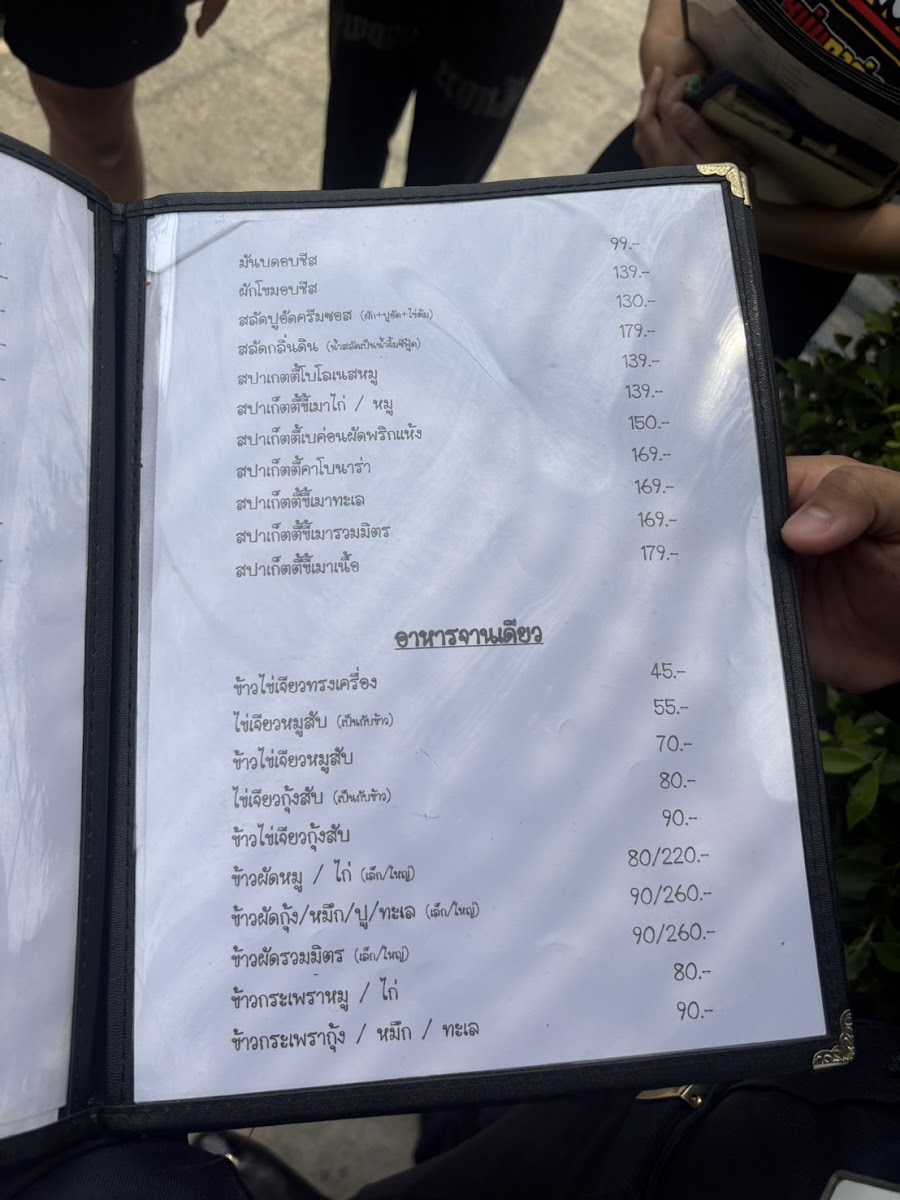 มันบดอบชีส 99.-
ผักโขมอบชีส 139.-
สลัดปูอัดครีมซอส (ผัก+ปูอัด+ไข่ต้ม) 130.-
สลัดกลิ่นดิน (น้ำสลัดเป็นน้ำจิ้มซีฟู้ด) 179.-
สปาเกตตี้โบโลเนสหมู 139.-
สปาเก็ตตี้ขี้เมาไก่ / หมู 139.-
สปาเก็ตตี้เบค่อนผัดพริกแห้ง 150.-
สปาเก็ตตี้คาโบนาร่า 169.-
สปาเก็ตตี้ขี้เมาทะเล 169.-
สปาเก็ตตี้ขี้เมารวมมิตร 169.-
สปาเก็ตตี้ขี้เมาเนื้อ 179.-
อาหารจานเดียว
ข้าวไข่เจียวทรงเครื่อง 45.-
ไข่เจียวหมูสับ (เป็นกับข้าว) 55.-
ข้าวไข่เจียวหมูสับ 70.-
ไข่เจียวกุ้งสับ (เป็นกับข้าว) 80.-
ข้าวไข่เจียวกุ้งสับ 90.-
ข้าวผัดหมู / ไก่ (เล็ก/ใหญ่) 80/220.-
ข้าวผัดกุ้ง/หมึก/ปู/ทะเล (เล็ก/ใหญ่) 90/260.-
ข้าวผัดรวมมิตร (เล็ก/ใหญ่) 90/260.-
ข้าวกระเพราหมู / ไก่ 80.-
ข้าวกระเพรากุ้ง / หมึก / ทะเล 90.-